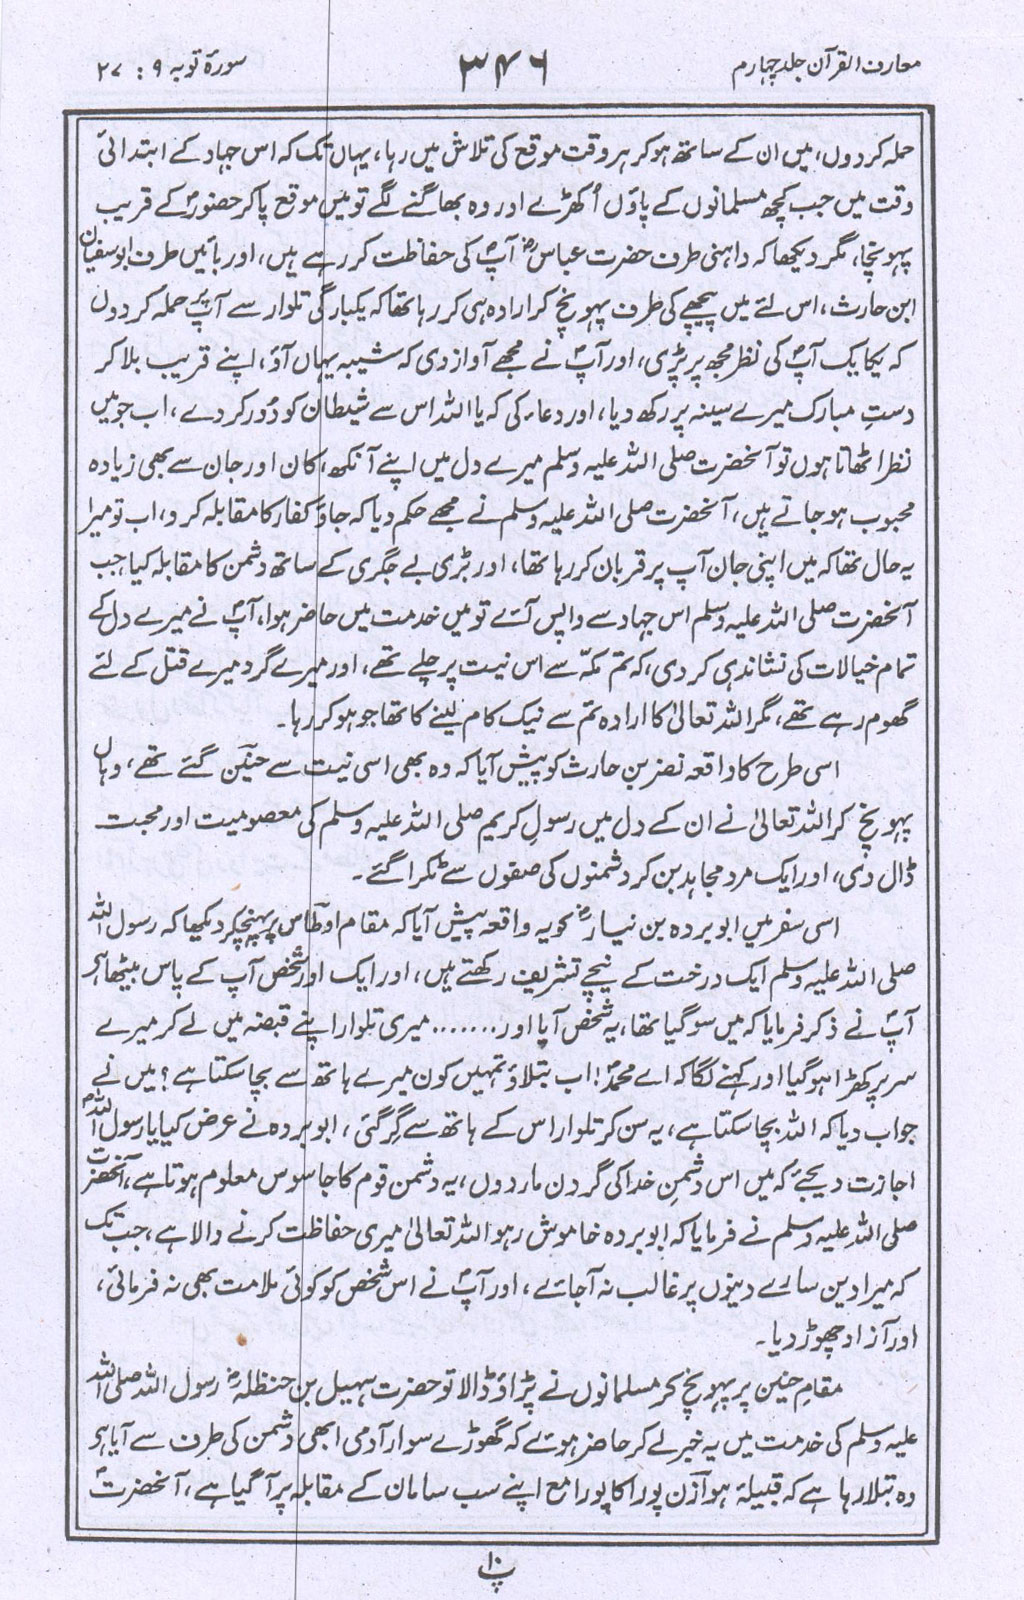 معارف القرآن جلد چہارم
۳۴۶
سورۂ توبہ ۹ : ۲۷
حملہ کردوں، میں ان کے ساتھ ہو کر ہر وقت موقع کی تلاش میں رہا، یہاں تک کہ اس جہاد کے ابتدائی
وقت میں جب کچھ مسلمانوں کے پاؤں اُکھڑے اور وہ بھاگنے لگے تو میں موقع پاکر حضورؐ کے قریب
پہونچا، مگر دیکھا کہ داہنی طرف حضرت عباسؓ آپؐ کی حفاظت کر رہے ہیں، اور بائیں طرف ابوسفیان
ابن حارث، اس لئے میں پیچھے کی طرف پہونچ کر ارادہ ہی کر رہا تھا کہ یکبارگی تلوار سے آپؐ پر حملہ کردوں
کہ یکایک آپؐ کی نظر مجھ پر پڑی، اور آپؐ نے مجھے آواز دی کہ شیبہ یہاں آؤ، اپنے قریب بلا کر
دستِ مبارک میرے سینہ پر رکھ دیا، اور دعاء کی کہ یا اللہ اس سے شیطان کو دُور کر دے، اب جو میں
نظر اٹھاتا ہوں تو آنحضرت صلی اللہ علیہ وسلم میرے دل میں اپنے آنکھ، کان اور جان سے بھی زیادہ
محبوب ہو جاتے ہیں، آنحضرت صلی اللہ علیہ وسلم نے مجھے حکم دیا کہ جاؤ کفار کا مقابلہ کرو، اب تو میرا
یہ حال تھا کہ میں اپنی جان آپ پر قربان کر رہا تھا، اور بڑی بے جگری کے ساتھ دشمن کا مقابلہ کیا، جب
آنحضرت صلی اللہ علیہ وسلم اس جہاد سے واپس آئے تو میں خدمت میں حاضر ہوا، آپؐ نے میرے دل کے
تمام خیالات کی نشاندہی کر دی، کہ تم مکہ سے اس نیت پر چلے تھے، اور میرے گرد میرے قتل کے لئے
گھوم رہے تھے، مگر اللہ تعالیٰ کا ارادہ تم سے نیک کام لینے کا تھا جو ہو کر رہا۔
اسی طرح کا واقعہ نضر بن حارث کو پیش آیا کہ وہ بھی اسی نیت سے حنین گئے تھے، وہاں
پہونچ کر اللہ تعالیٰ نے ان کے دل میں رسولِ کریم صلی اللہ علیہ وسلم کی معصومیت اور محبت
ڈال دی، اور ایک مرد مجاہد بن کر دشمنوں کی صفوں سے ٹکرا گئے۔
اسی سفر میں ابو بردہ بن نیارؓ کو یہ واقعہ پیش آیا کہ مقام اوطاس پر پہنچ کر دیکھا کہ رسول اللہ
صلی اللہ علیہ وسلم ایک درخت کے نیچے تشریف رکھتے ہیں، اور ایک اور شخص آپ کے پاس بیٹھا ہے
آپؐ نے ذکر فرمایا کہ میں سوگیا تھا، یہ شخص آیا اور....... میری تلوار اپنے قبضہ میں لے کر میرے
سر پر کھڑا ہو گیا اور کہنے لگا کہ اے محمدؐ! اب بتلاؤ تمہیں کون میرے ہاتھ سے بچا سکتا ہے؟ میں نے
جواب دیا کہ اللہ بچا سکتا ہے، یہ سن کر تلوار اس کے ہاتھ سے گِر گئی، ابو بردہ نے عرض کیا یا رسول اللہؐ
اجازت دیجئے کہ میں اس دشمنِ خدا کی گردن ماردوں، یہ دشمن قوم کا جاسوس معلوم ہوتا ہے، آنحضرت
صلی اللہ علیہ وسلم نے فرمایا کہ ابو بردہ خاموش رہو اللہ تعالیٰ میری حفاظت کرنے والا ہے، جب تک
کہ میرا دین سارے دینوں پر غالب نہ آجائے، اور آپؐ نے اس شخص کو کوئی ملامت بھی نہ فرمائی،
اور آزاد چھوڑ دیا۔
مقامِ حنین پر پہونچ کر مسلمانوں نے پڑاؤ ڈالا تو حضرت سہیل بن حنظلہؓ رسول اللہ صلی اللہ
علیہ وسلم کی خدمت میں یہ خبر لے کر حاضر ہوئے کہ گھوڑے سوار آدمی ابھی دشمن کی طرف سے آیا ہے
وہ بتلا رہا ہے کہ قبیلۂ ہوازن پورا کا پورا مع اپنے سب سامان کے مقابلہ پر آگیا ہے، آنحضرتؐ
پ۱۰